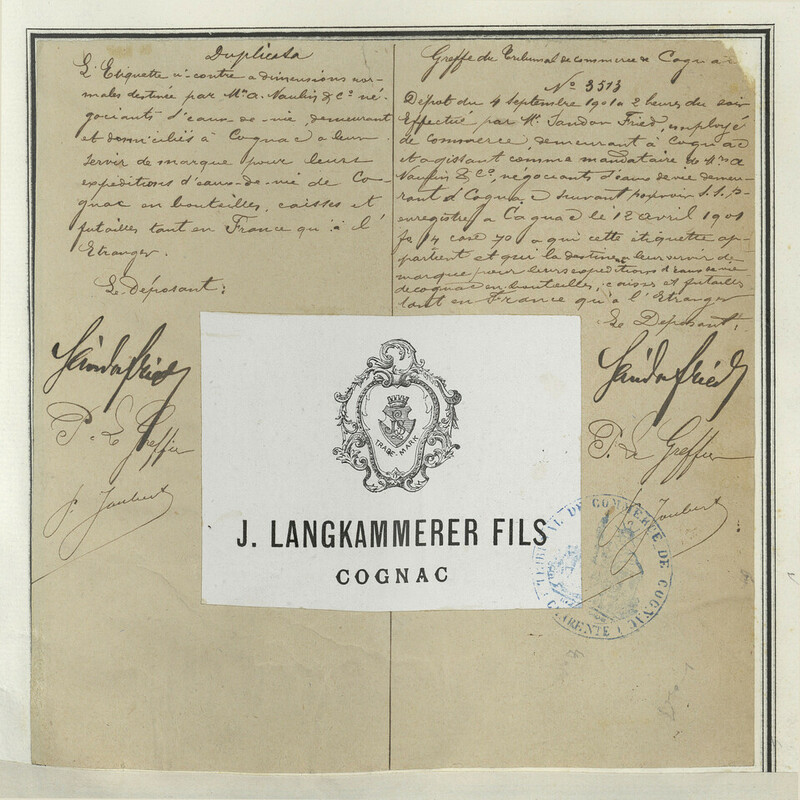 Duplicata
L'Etiquette ci-contre a dimensions nor-
males destinée par Mrs A. Naulin & Co né-
gociants d'eaux-de-vie, demeurant
et domiciliés à Cognac a leur
servir de marque pour leurs
expeditions d'eaux-de-vie de Co-
gnac en bouteilles, caisses et
futailles tant en France qu'à l'
Etranger.
Le Déposant:
Sándor Fried
P. Le Greffier
J. Joubert
Greffe du Tribunal de commerce de Cognac
No 3513
Dépot du 4 Septembre 1901 a 2 heures du soir
Effectué par Mr. Sandor Fried, employé
de commerce, demeurant à Cognac
et agissant comme mandataire de Mrs A
Naulin & Co, négociants d'eaux de vie demeu-
rant à Cognac suivant pouvoir S.S.P.
enregistré a Cognac le 12 avril 1901
fo 14 case 70 a qui cette étiquette ap-
partient et qui la destinent a leur servir de
marque pour leurs expeditions d'eaux de vie
de cognac en bouteilles, caisses et futailles
tant en France qu'a l'Etranger
Le Déposant:
Sándor Fried
P. Le Greffier
J. Joubert
TRADE MARK
J. LANGKAMMERER FILS
COGNAC
TRIBUNAL DE COMMERCE DE COGNAC
CHARENTE